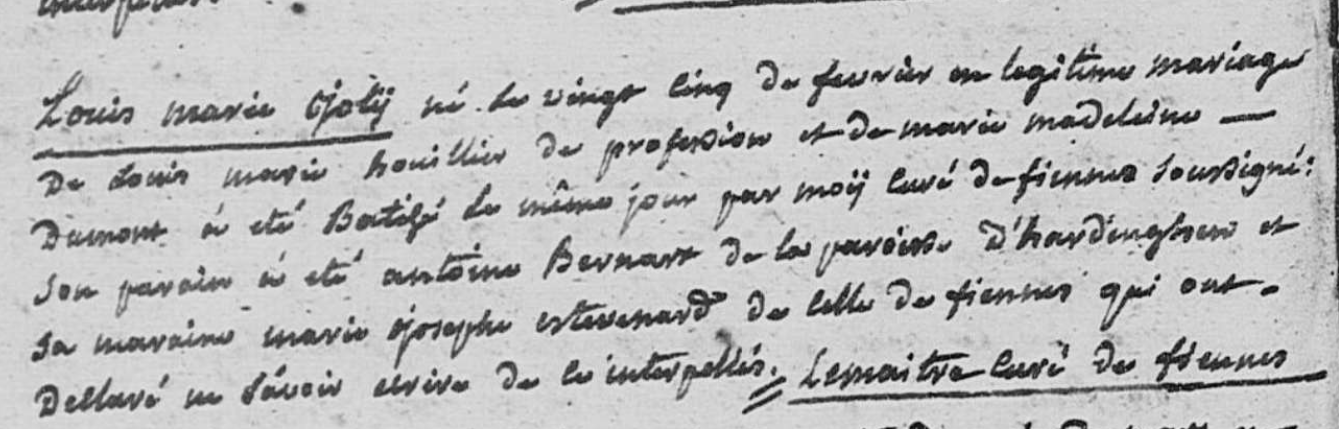 Louis marie Joly né le vingt cinq de fevrier en legitime mariage
De Louis marie houillier de profession et de marie madeleine —
Dumont a été Batisé le même jour par moÿ curé de fiennes soussigné:
son parain a eté antoine Bernart de la paroisse D'hardinghen et
sa maraine marie josephe estevenard de celle de fiennes qui ont
Declaré ne savoir ecrire de ce interpellés. Lemaitre curé de fiennes